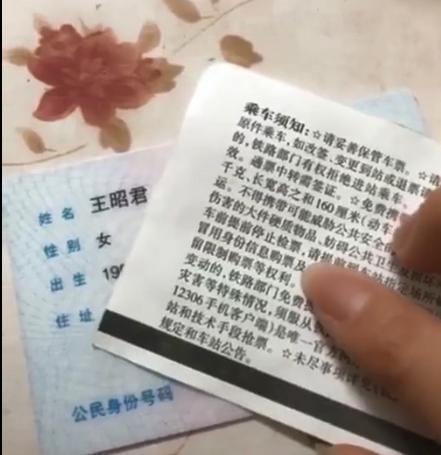 姓名 王昭君
性别 女
出生 199
住址
公民身份号码
乘车须知:☆请妥善保管车票。☆请
原件乘车,如改签、变更到站或退票
的,铁路部门有权拒绝进站乘车。
效。通票中转需签证。☆免费携
千克,长宽高之和160厘米(动车
运。不得携带可能威胁公共安全
伤害的大件硬质物品、妨碍公共卫生
车前提前停止检票,请提前到
冒用身份信息购票及
留限制购票等权利。
变动的,铁路部门免费
灾害等特殊情况,须服从
12306手机客户端)是唯一官方
站和技术手段抢票。☆未尽事项详见
规定和车站公告。